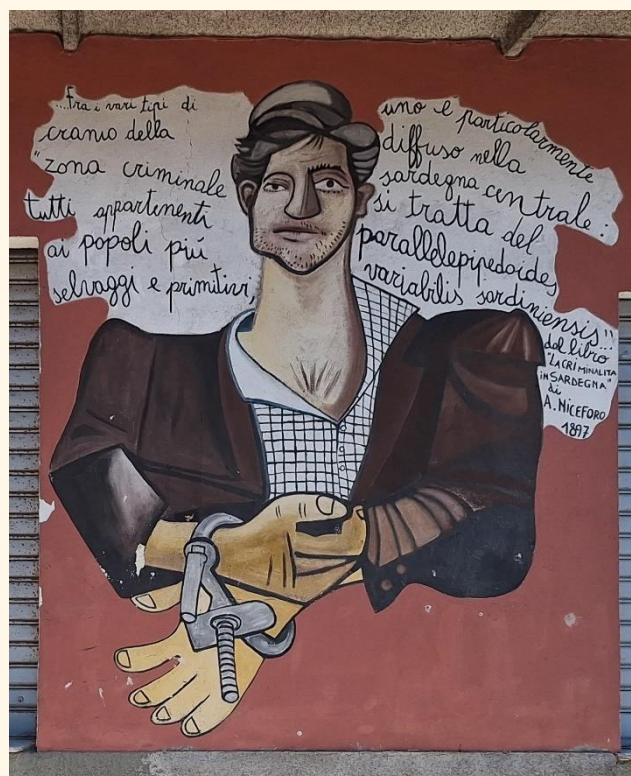 ...Fra i vari tipi di
cranio della
"zona criminale
tutti appartenenti
ai popoli più
selvaggi e primitivi,
uno e particolarmente
diffuso nella
sardegna centrale:
si tratta del
parallelepipedoides
variabilis sardiniensis"...
dal libro
"LA CRIMINALITA
IN SARDEGNA"
di
A. NICEFORO
1897